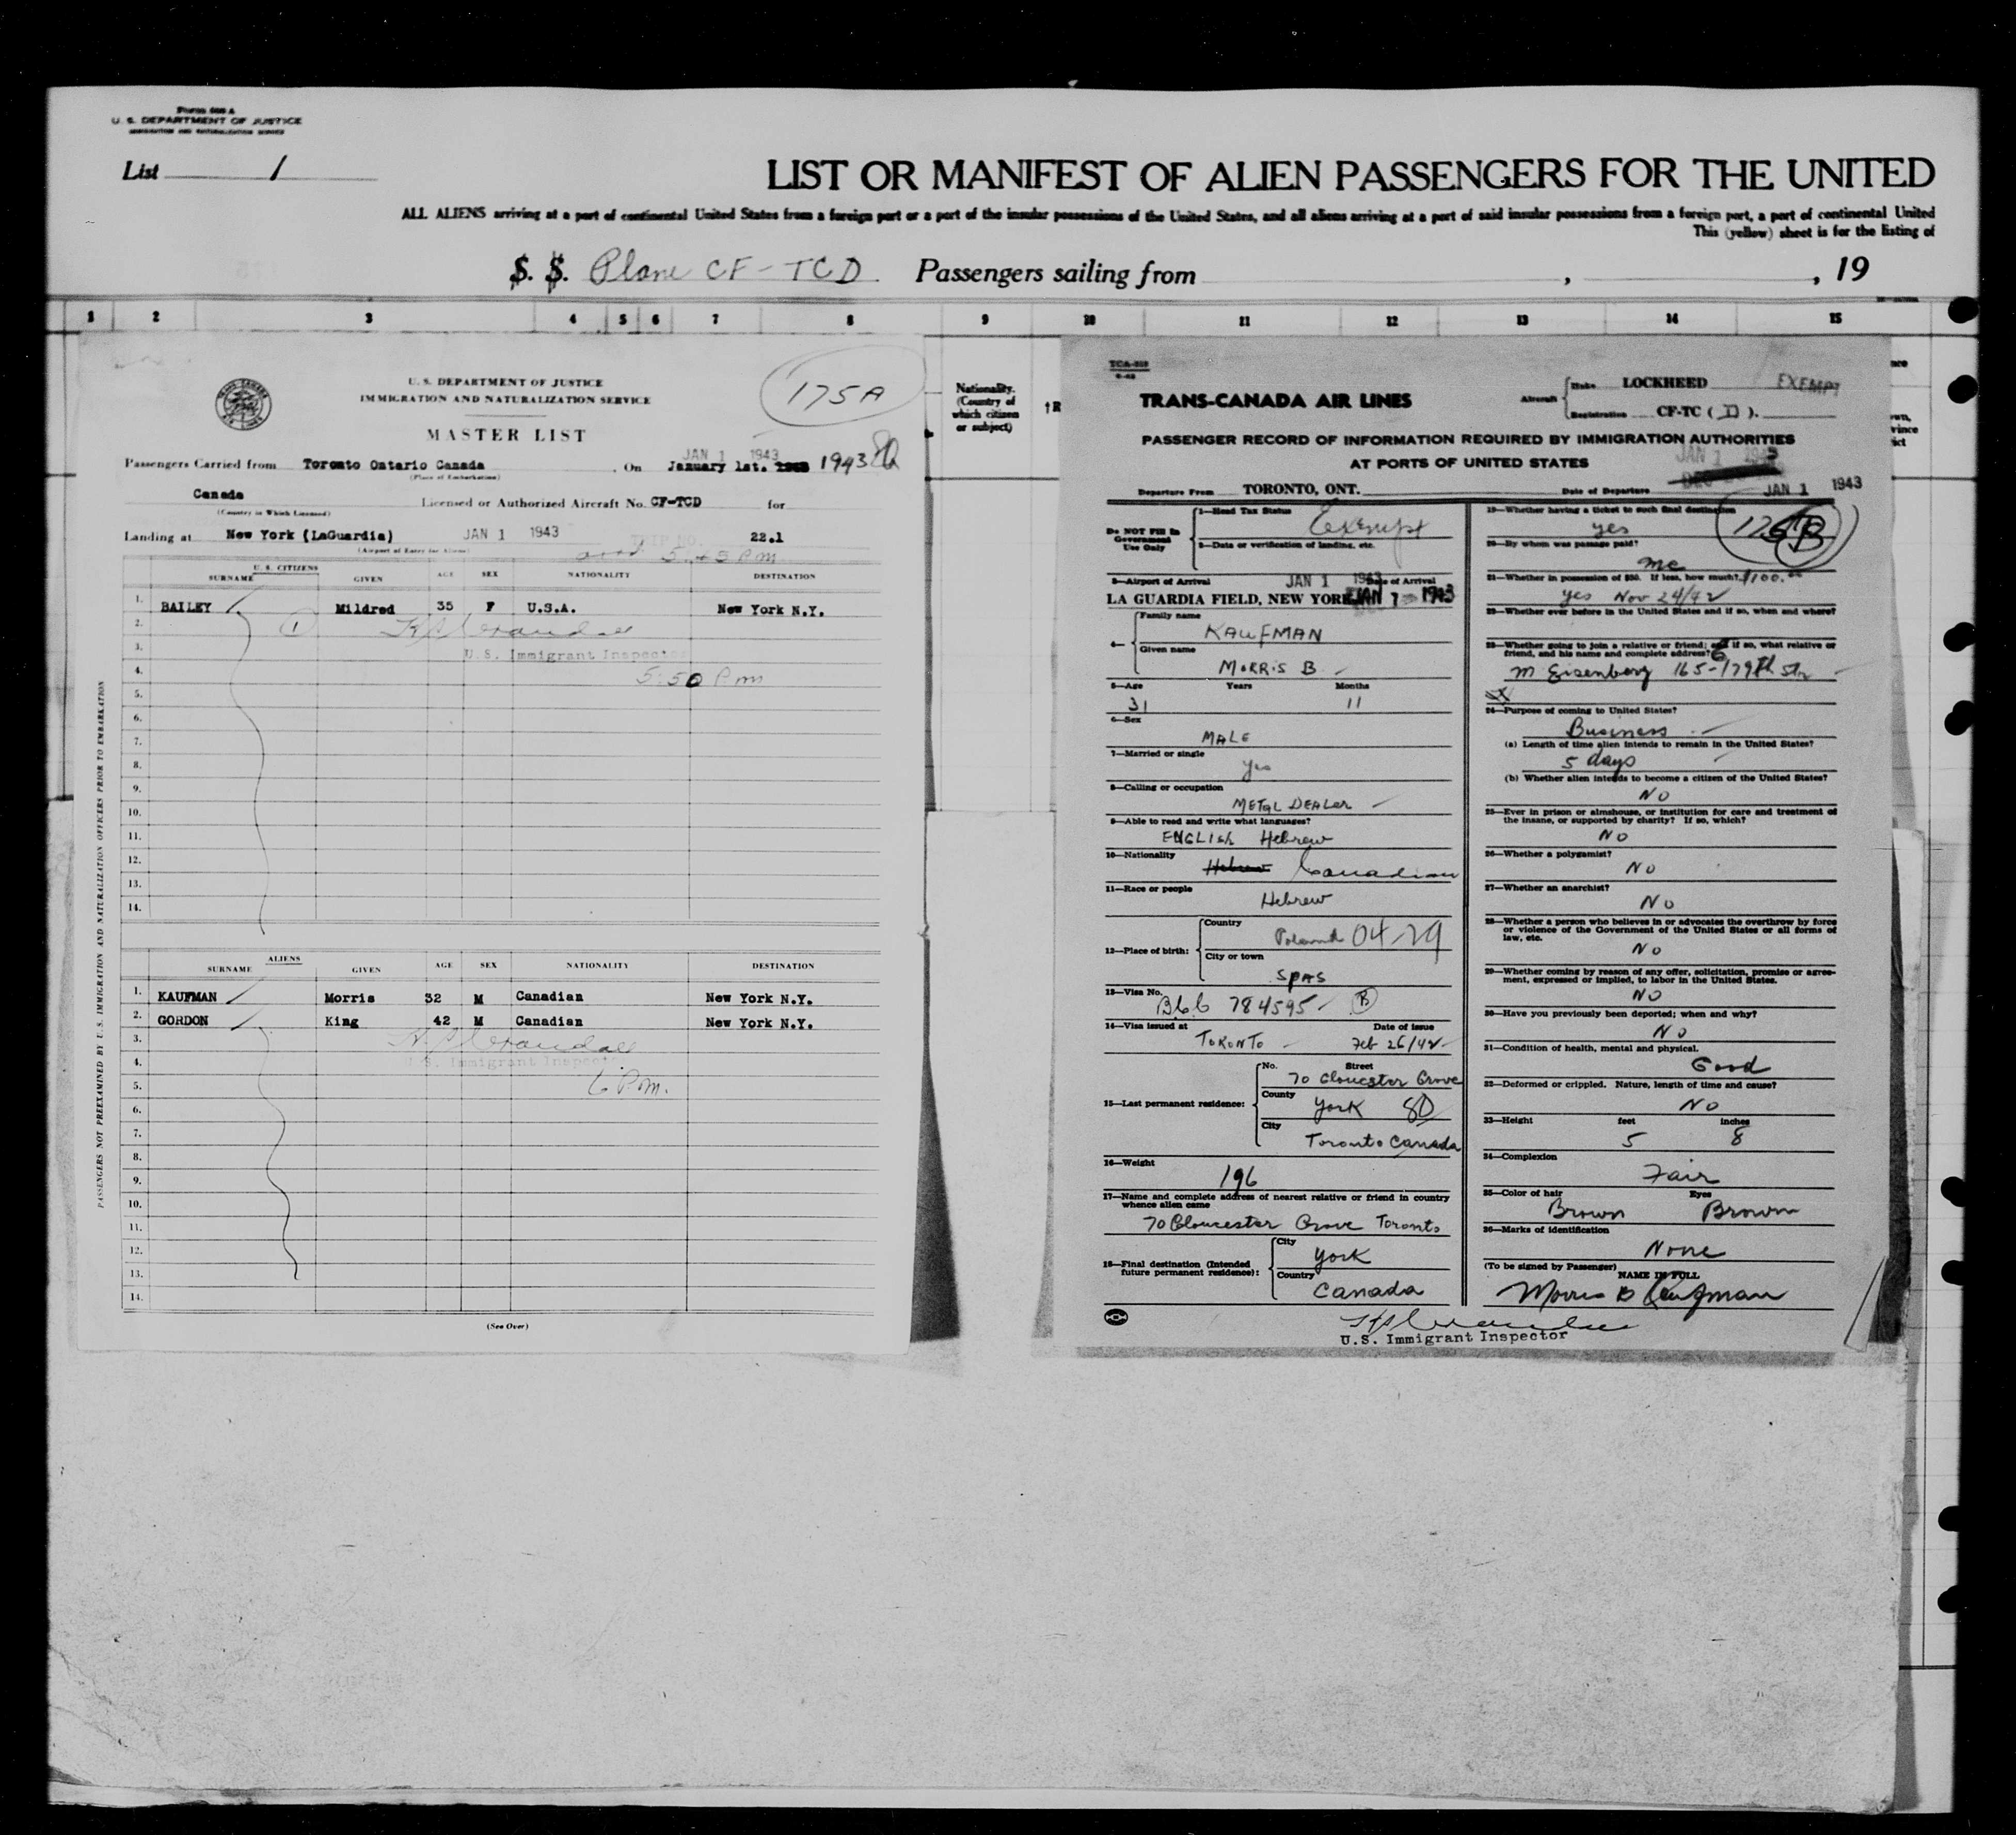 Form 500 A
U. S. DEPARTMENT OF JUSTICE
IMMIGRATION AND NATURALIZATION SERVICE
List 1
LIST OR MANIFEST OF ALIEN PASSENGERS FOR THE UNITED
ALL ALIENS arriving at a port of continental United States from a foreign port or a port of the insular possessions of the United States, and all aliens arriving at a port of said insular possessions from a foreign port, a port of continental United
This (yellow) sheet is for the listing of
S. S. Plane CF-TCD Passengers sailing from , , 19
1 2 3 4 5 6 7 8 9 10 11 12 13 14 15
Nationality.
(Country of
which citizen
or subject)
175A
U. S. DEPARTMENT OF JUSTICE
IMMIGRATION AND NATURALIZATION SERVICE
MASTER LIST
JAN 1 1943
Passengers Carried from Toronto Ontario Canada , On January 1st. 1943
(Place of Embarkation)
Canada Licensed or Authorized Aircraft No. CF-TCD for
(Country in Which Licensed)
Landing at New York (LaGuardia) JAN 1 1943 TRIP NO. 22.1
(Airport of Entry for Aliens) 5.45 PM
U. S. CITIZENS
SURNAME GIVEN AGE SEX NATIONALITY DESTINATION
1. BAILEY Mildred 35 F U.S.A. New York N.Y.
2. 1
3. U.S. Immigrant Inspector
4. 5:50 Pm
5.
6.
7.
8.
9.
10.
11.
12.
13.
14.
ALIENS
SURNAME GIVEN AGE SEX NATIONALITY DESTINATION
1. KAUFMAN Morris 32 M Canadian New York N.Y.
2. GORDON King 42 M Canadian New York N.Y.
3.
4. U.S. Immigrant Inspector
5. 6 Pm.
6.
7.
8.
9.
10.
11.
12.
13.
14.
(See Over)
PASSENGERS NOT PREEXAMINED BY U. S. IMMIGRATION AND NATURALIZATION OFFICERS PRIOR TO EMBARKATION
TRANS-CANADA AIR LINES
Aircraft Make LOCKHEED EXEMPT
Registration CF-TC ( D ).
PASSENGER RECORD OF INFORMATION REQUIRED BY IMMIGRATION AUTHORITIES
AT PORTS OF UNITED STATES
JAN 1 1943
Departure From TORONTO, ONT. Date of Departure JAN 1 1943
Do NOT Fill In
Government
Use Only
1—Head Tax Status Exempt
2—Data or verification of landing, etc.
3—Airport of Arrival JAN 1 1943 Date of Arrival
LA GUARDIA FIELD, NEW YORK JAN 1 1943
4—
Family name
KAUFMAN
Given name
MORRIS B
5—Age Years Months
31 11
6—Sex
MALE
7—Married or single
yes
8—Calling or occupation
METAL DEALER
9—Able to read and write what languages?
ENGLISH Hebrew
10—Nationality
Hebrew Canadian
11—Race or people
Hebrew
12—Place of birth:
Country
Poland 04-29
City or town
SPAS
13—Visa No.
784595 B
14—Visa issued at Date of issue
TORONTO Feb 26/42
15—Last permanent residence:
No. Street
70 Gloucester Grove
County
York 80
City
Toronto Canada
16—Weight
196
17—Name and complete address of nearest relative or friend in country
whence alien came
70 Gloucester Grove Toronto
18—Final destination (Intended
future permanent residence):
City
York
Country
Canada
19—Whether having a ticket to such final destination
yes 175B
20—By whom was passage paid?
me
21—Whether in possession of $50. If less, how much? $100.00
yes Nov 24/42
22—Whether ever before in the United States and if so, when and where?
23—Whether going to join a relative or friend; and if so, what relative or
friend, and his name and complete address?
M Eisenberg 165-179th St
24—Purpose of coming to United States?
Business
(a) Length of time alien intends to remain in the United States?
5 days
(b) Whether alien intends to become a citizen of the United States?
NO
25—Ever in prison or almshouse, or institution for care and treatment of
the insane, or supported by charity? If so, which?
NO
26—Whether a polygamist?
NO
27—Whether an anarchist?
NO
28—Whether a person who believes in or advocates the overthrow by force
or violence of the Government of the United States or all forms of
law, etc.
NO
29—Whether coming by reason of any offer, solicitation, promise or agree-
ment, expressed or implied, to labor in the United States.
NO
30—Have you previously been deported; when and why?
NO
31—Condition of health, mental and physical.
Good
32—Deformed or crippled. Nature, length of time and cause?
NO
33—Height feet inches
5 8
34—Complexion
Fair
35—Color of hair Eyes
Brown Brown
36—Marks of identification
None
(To be signed by Passenger)
NAME IN FULL
Morris B Kaufman
U.S. Immigrant Inspector